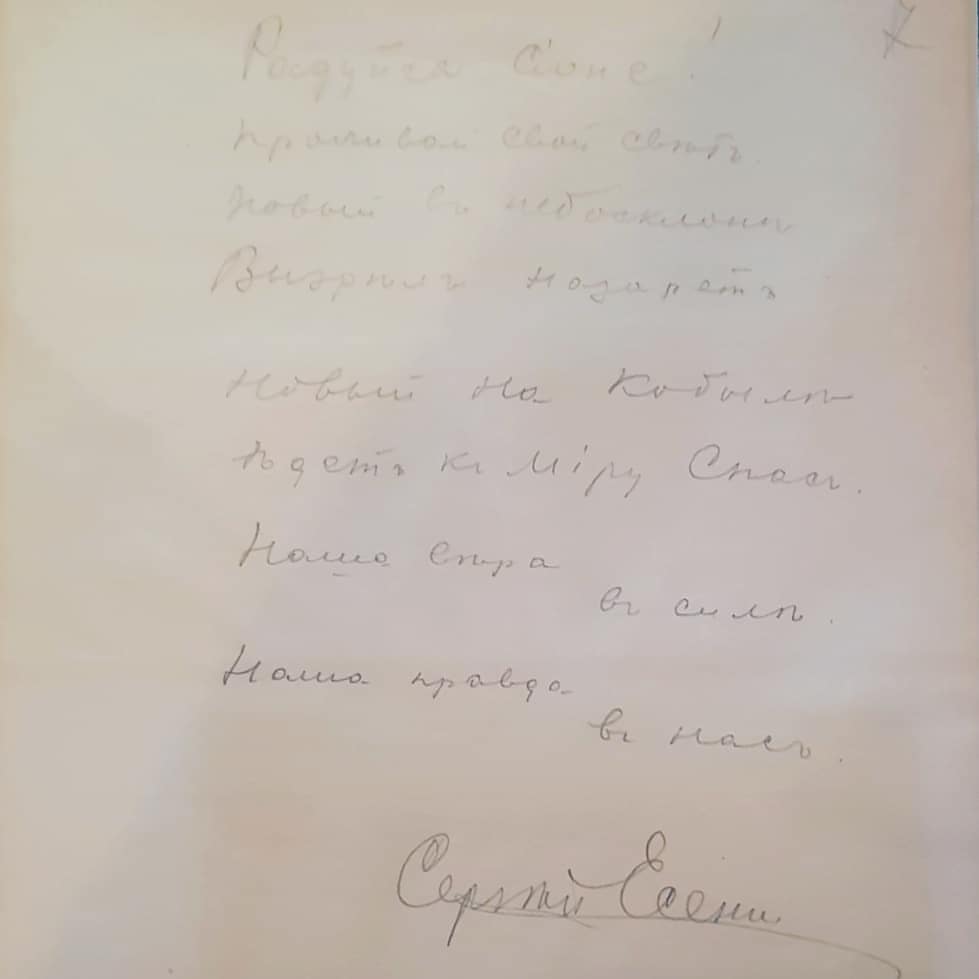 7
Радуйся Сіоне!
проливай свой свѣтъ.
новый въ небосклонѣ
Вызрѣлъ назаретъ
Новый на Кобылѣ
ѣдетъ къ Міру Спасъ.
Наша вѣра
въ силѣ.
Наша правда
въ насъ.
Сергѣй Есенин